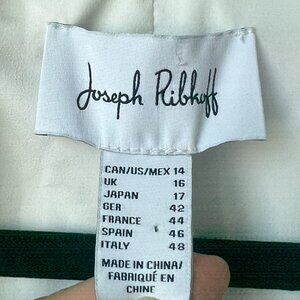 Joseph Ribkoff
CAN/US/MEX 14
UK 16
JAPAN 17
GER 42
FRANCE 44
SPAIN 46
ITALY 48
MADE IN CHINA/
FABRIQUÉ EN
CHINE